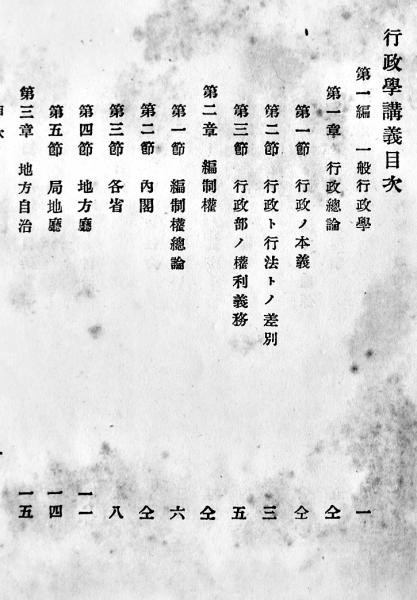 行政學講義目次
第一編 一般行政學 一
第一章 行政總論 仝
第一節 行政ノ本義 仝
第二節 行政ト行法トノ差別 三
第三節 行政部ノ權利義務 五
第二章 編制權 仝
第一節 編制權總論 六
第二節 內閣 仝
第三節 各省 八
第四節 地方廳 一一
第五節 局地廳 一四
第三章 地方自治 一五